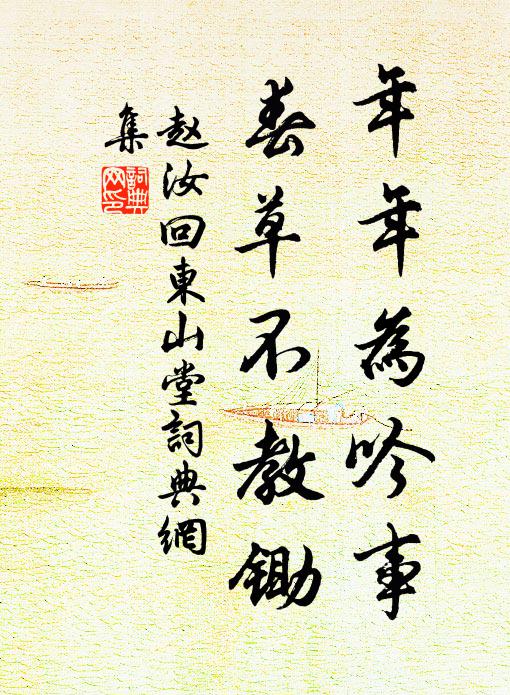 年年為吟事
春草不教鋤
赵汝回東山堂詞典網
集
詞典
网印